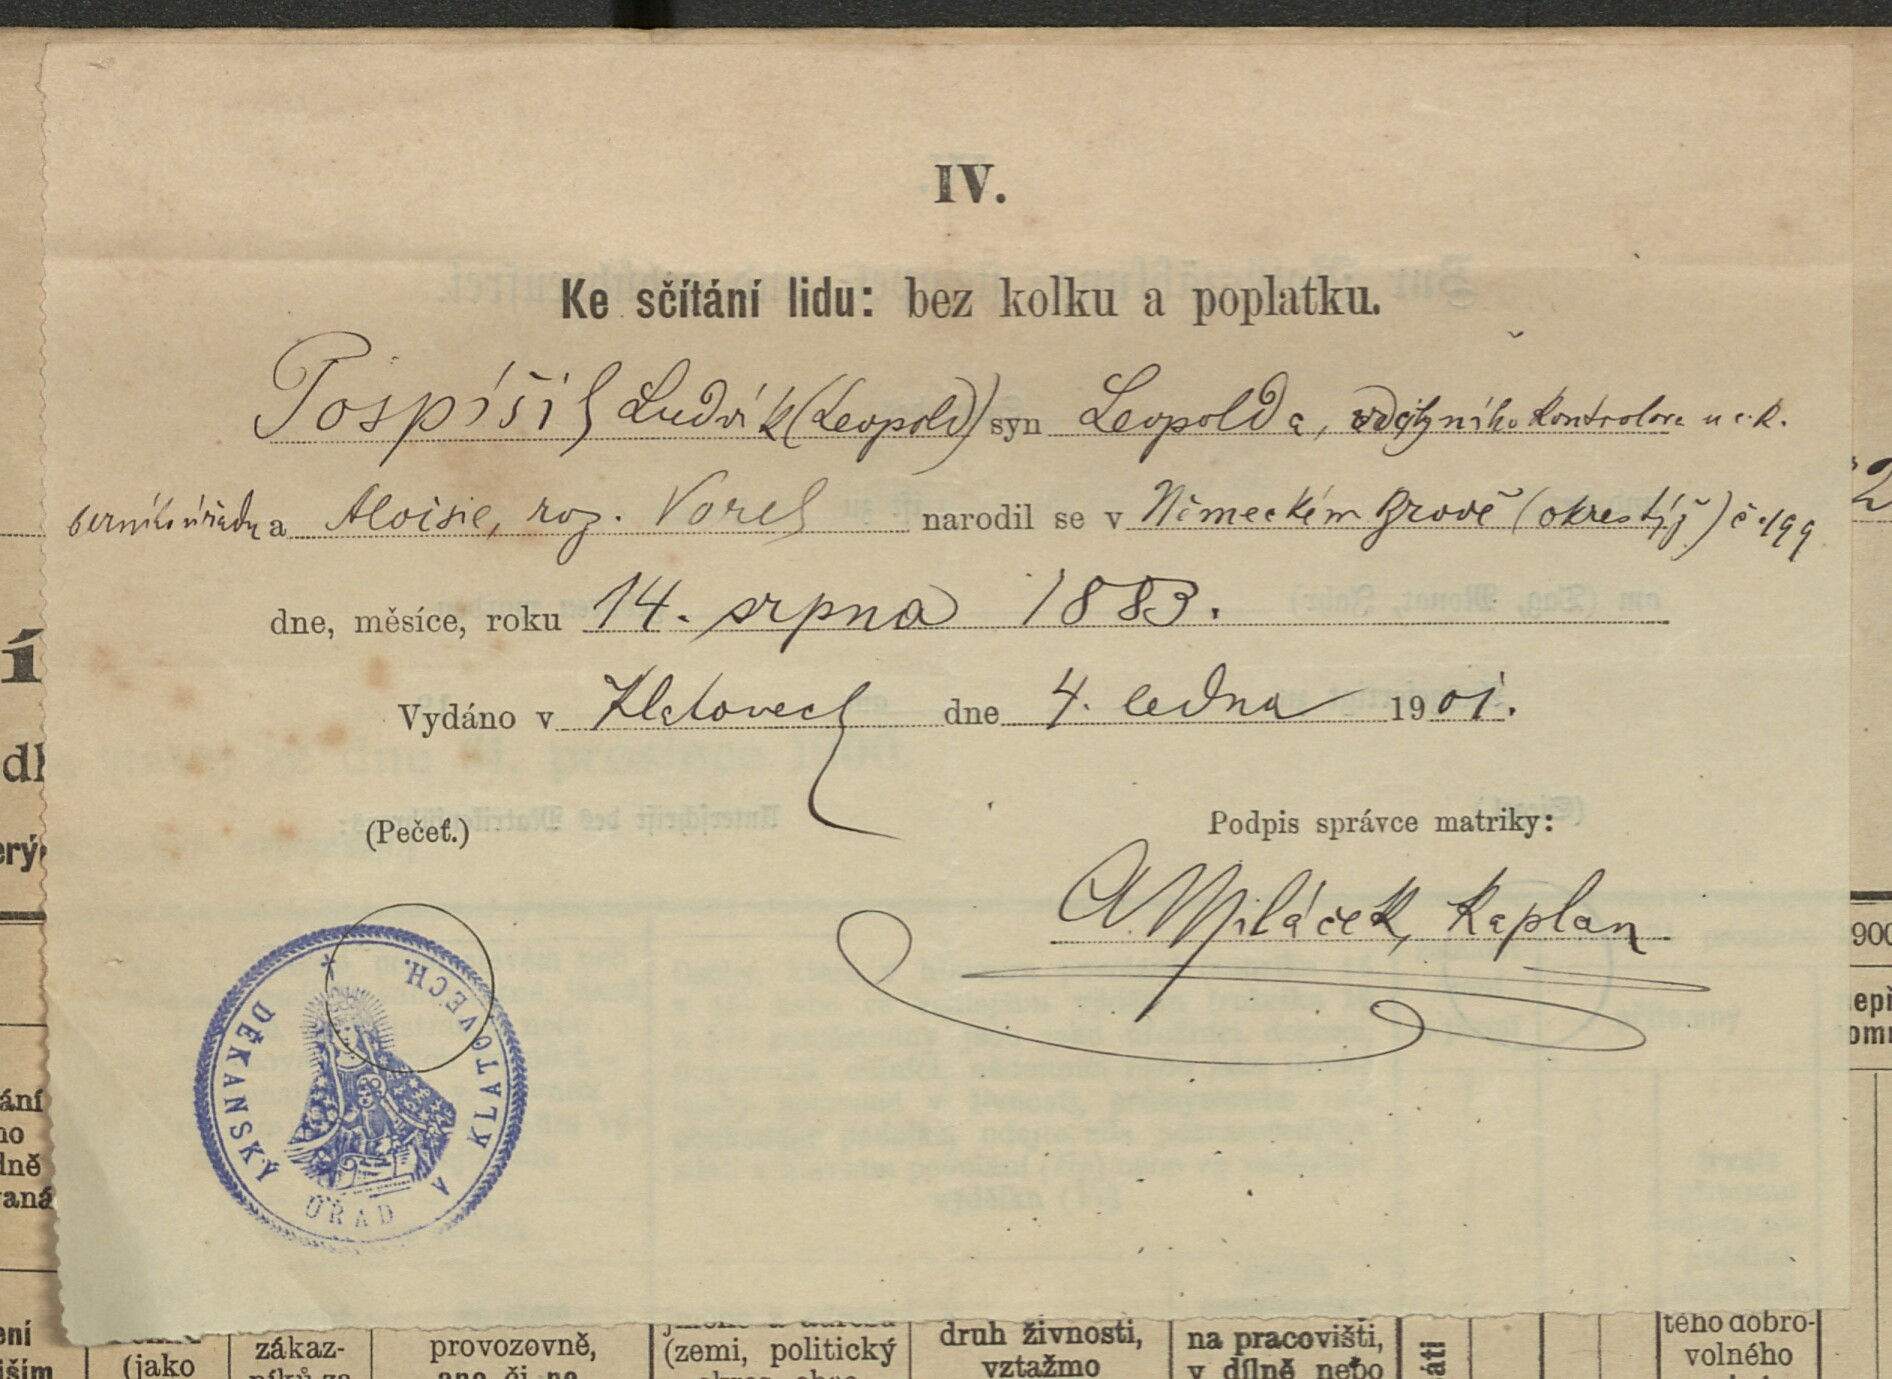 IV.
Ke sčítání lidu: bez kolku a poplatku.
Pospíšil Ludvík (Leopold) syn Leopolda, kontrolora u c. k.
berního úřadu a Aloisie, roz. Vorel narodil se v Německém Brodě (okres týž) č. 199
dne, měsíce, roku 14. srpna 1883.
Vydáno v Klatovech dne 4. ledna 1901.
(Pečeť.)
Podpis správce matriky:
A. Miláček, Kaplan
DĚKANSKÝ ÚŘAD V KLATOVECH.
provozovně,
zákaz-
(jako
(zemi, politický
druh živnosti,
vztažmo
na pracovišti,
v dílně nebo
volného